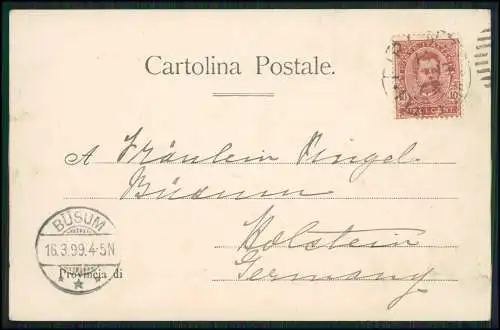 Cartolina Postale.
A Fräulein Pingel
Büsum
Holstein
Germany
Provincia di
BÜSUM
16.3.99.4-5N